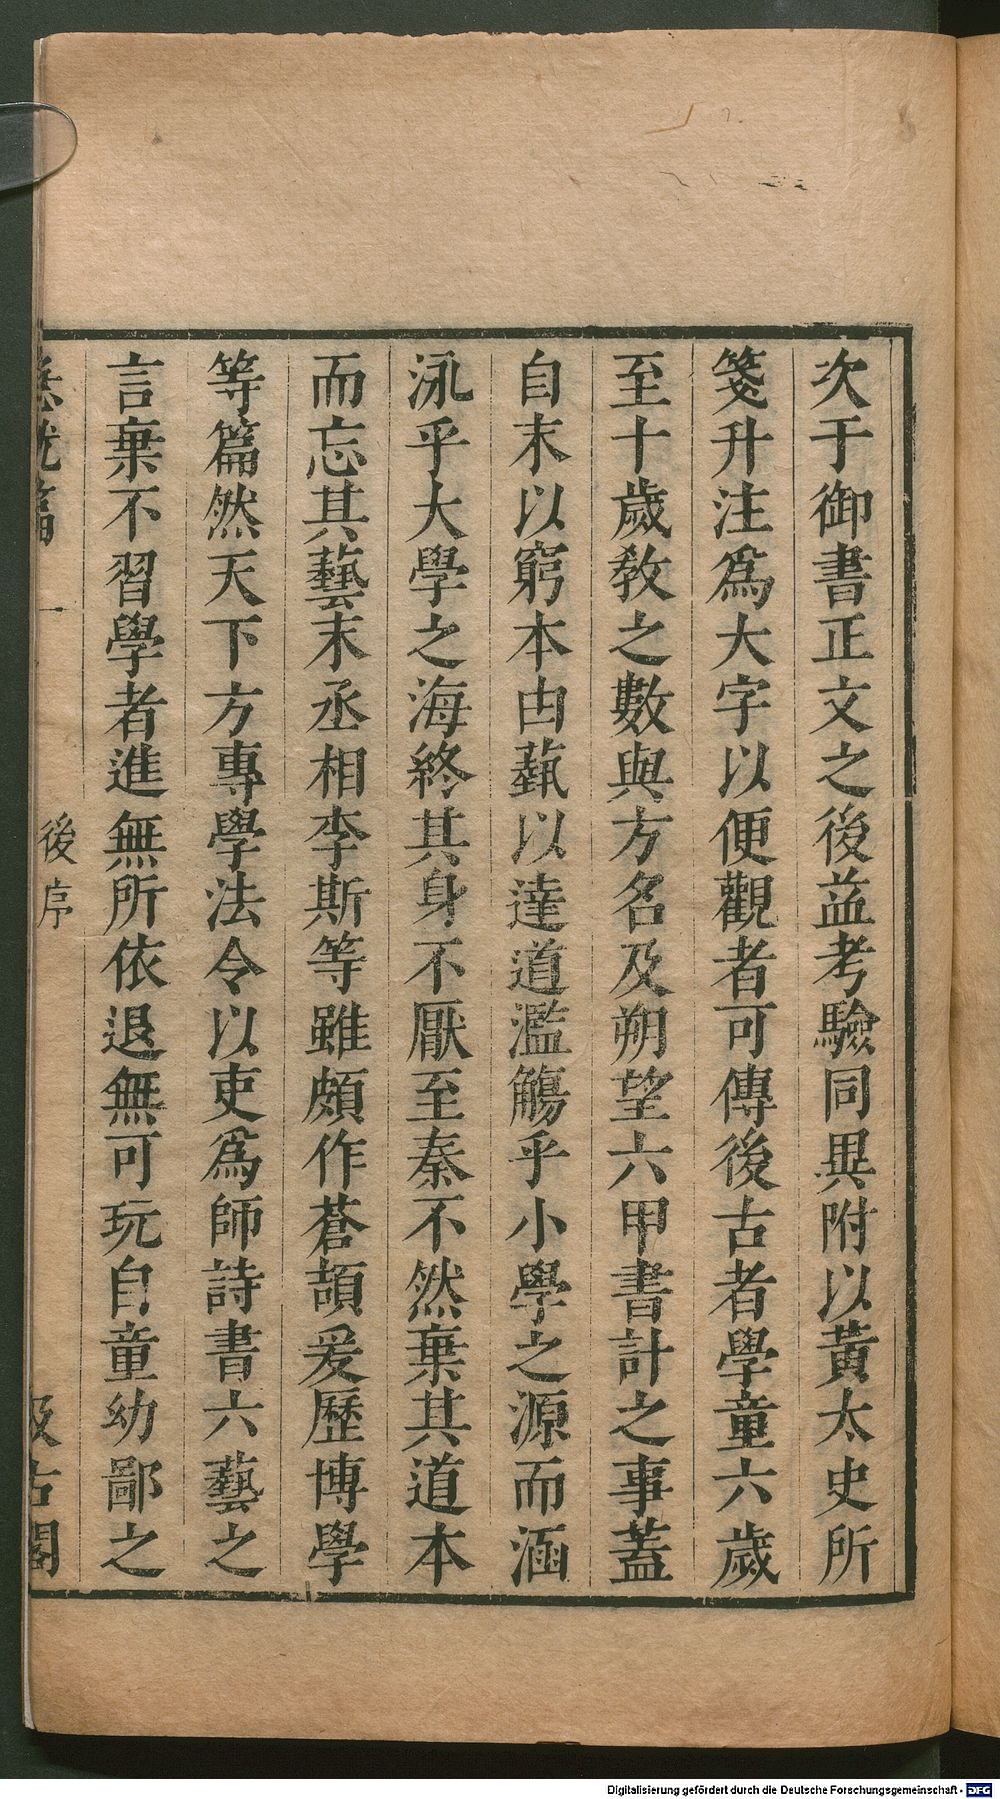 次于御書正文之後益考驗同異附以黃太史所
箋升注爲大字以便觀者可傳後古者學童六歲
至十歲敎之數與方名及朔望六甲書計之事蓋
自末以窮本由蓺以達道濫觴乎小學之源而涵
泳乎大學之海終其身不厭至秦不然棄其道本
而忘其藝末丞相李斯等雖頗作蒼頡爰歷博學
等篇然天下方專學法令以吏爲師詩書六藝之
言棄不習學者進無所依退無可玩自童幼鄙之
急就篇 一 後序 汲古閣
Digitalisierung gefördert durch die Deutsche Forschungsgemeinschaft - DFG